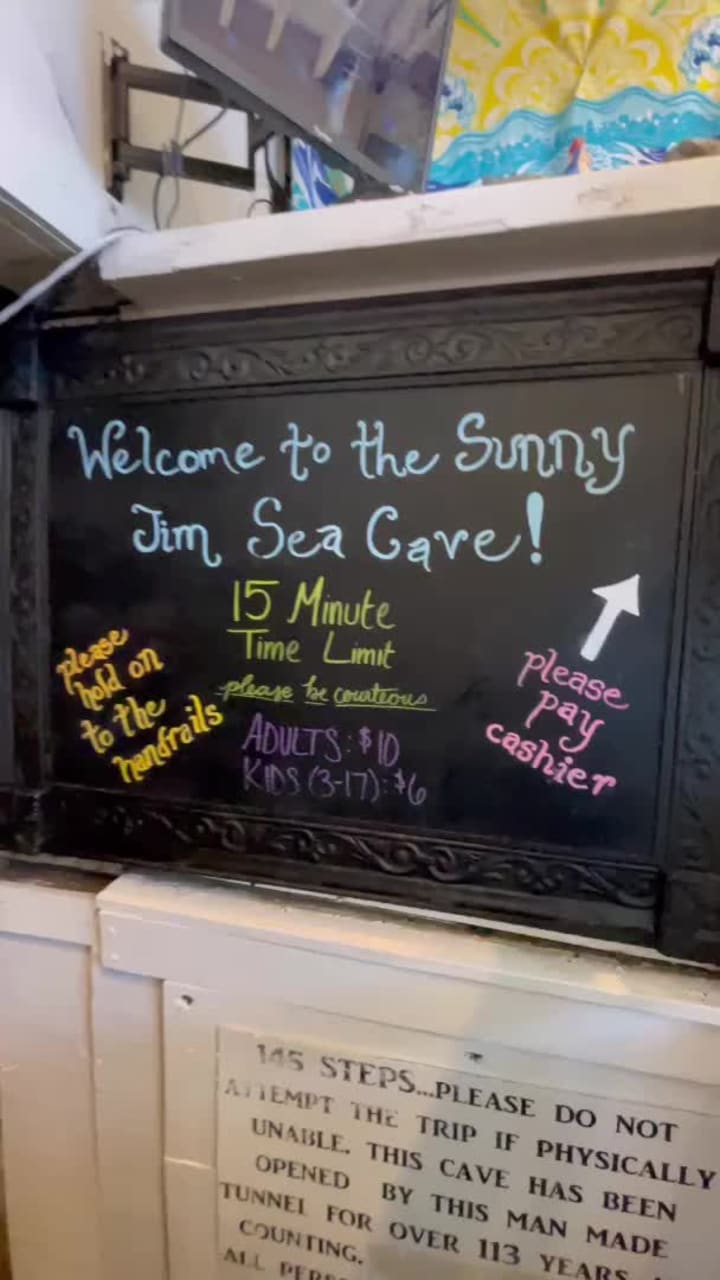 Welcome to the Sunny
Jim Sea Cave!
15 Minute
Time Limit
please be courteous
ADULTS: $10
KIDS (3-17): $6
please
hold on
to the
handrails
please
pay
cashier
145 STEPS...PLEASE DO NOT
ATTEMPT THE TRIP IF PHYSICALLY
UNABLE. THIS CAVE HAS BEEN
OPENED BY THIS MAN MADE
TUNNEL FOR OVER 113 YEARS
COUNTING.
ALL